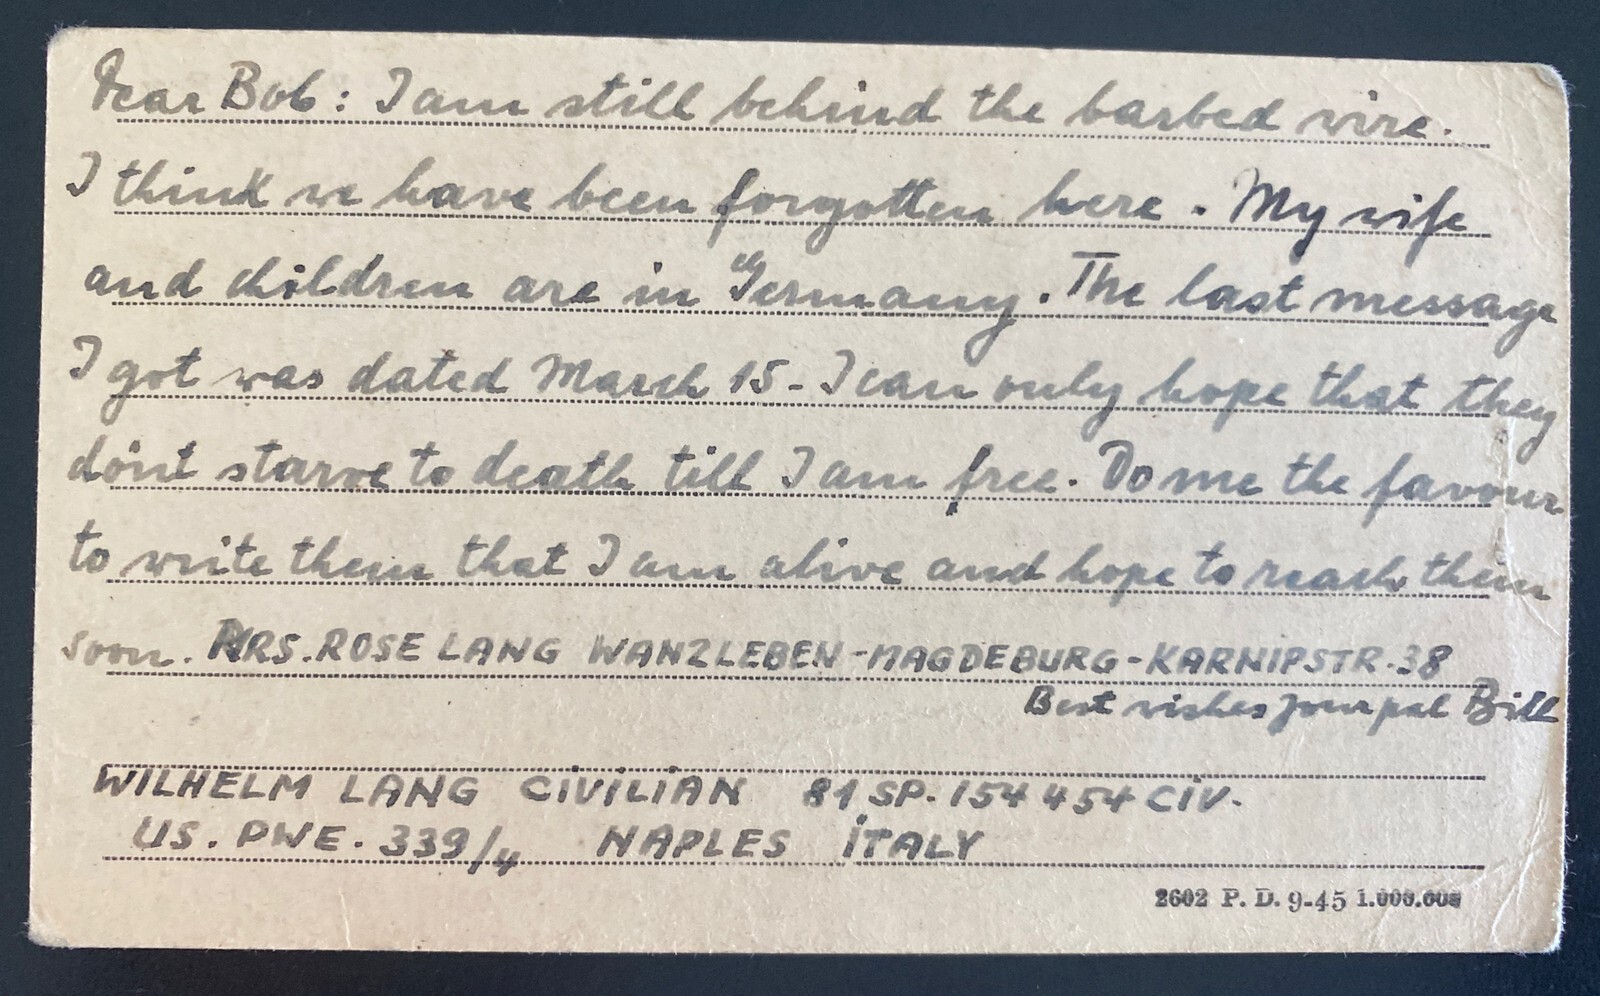 Dear Bob: I am still behind the barbed wire.
I think we have been forgotten here. My wife
and children are in Germany. The last message
I got was dated March 15 - I can only hope that they
don't starve to death till I am free. Do me the favour
to write them that I am alive and hope to reach them
soon. MRS. ROSE LANG WANZLEBEN - MAGDEBURG - KARNIPSTR. 38
Best wishes your pal Bill
WILHELM LANG CIVILIAN 81 SP. 154 454 CIV.
US. PWE. 339/4 NAPLES ITALY
2602 P. D. 9-45 1.000.000